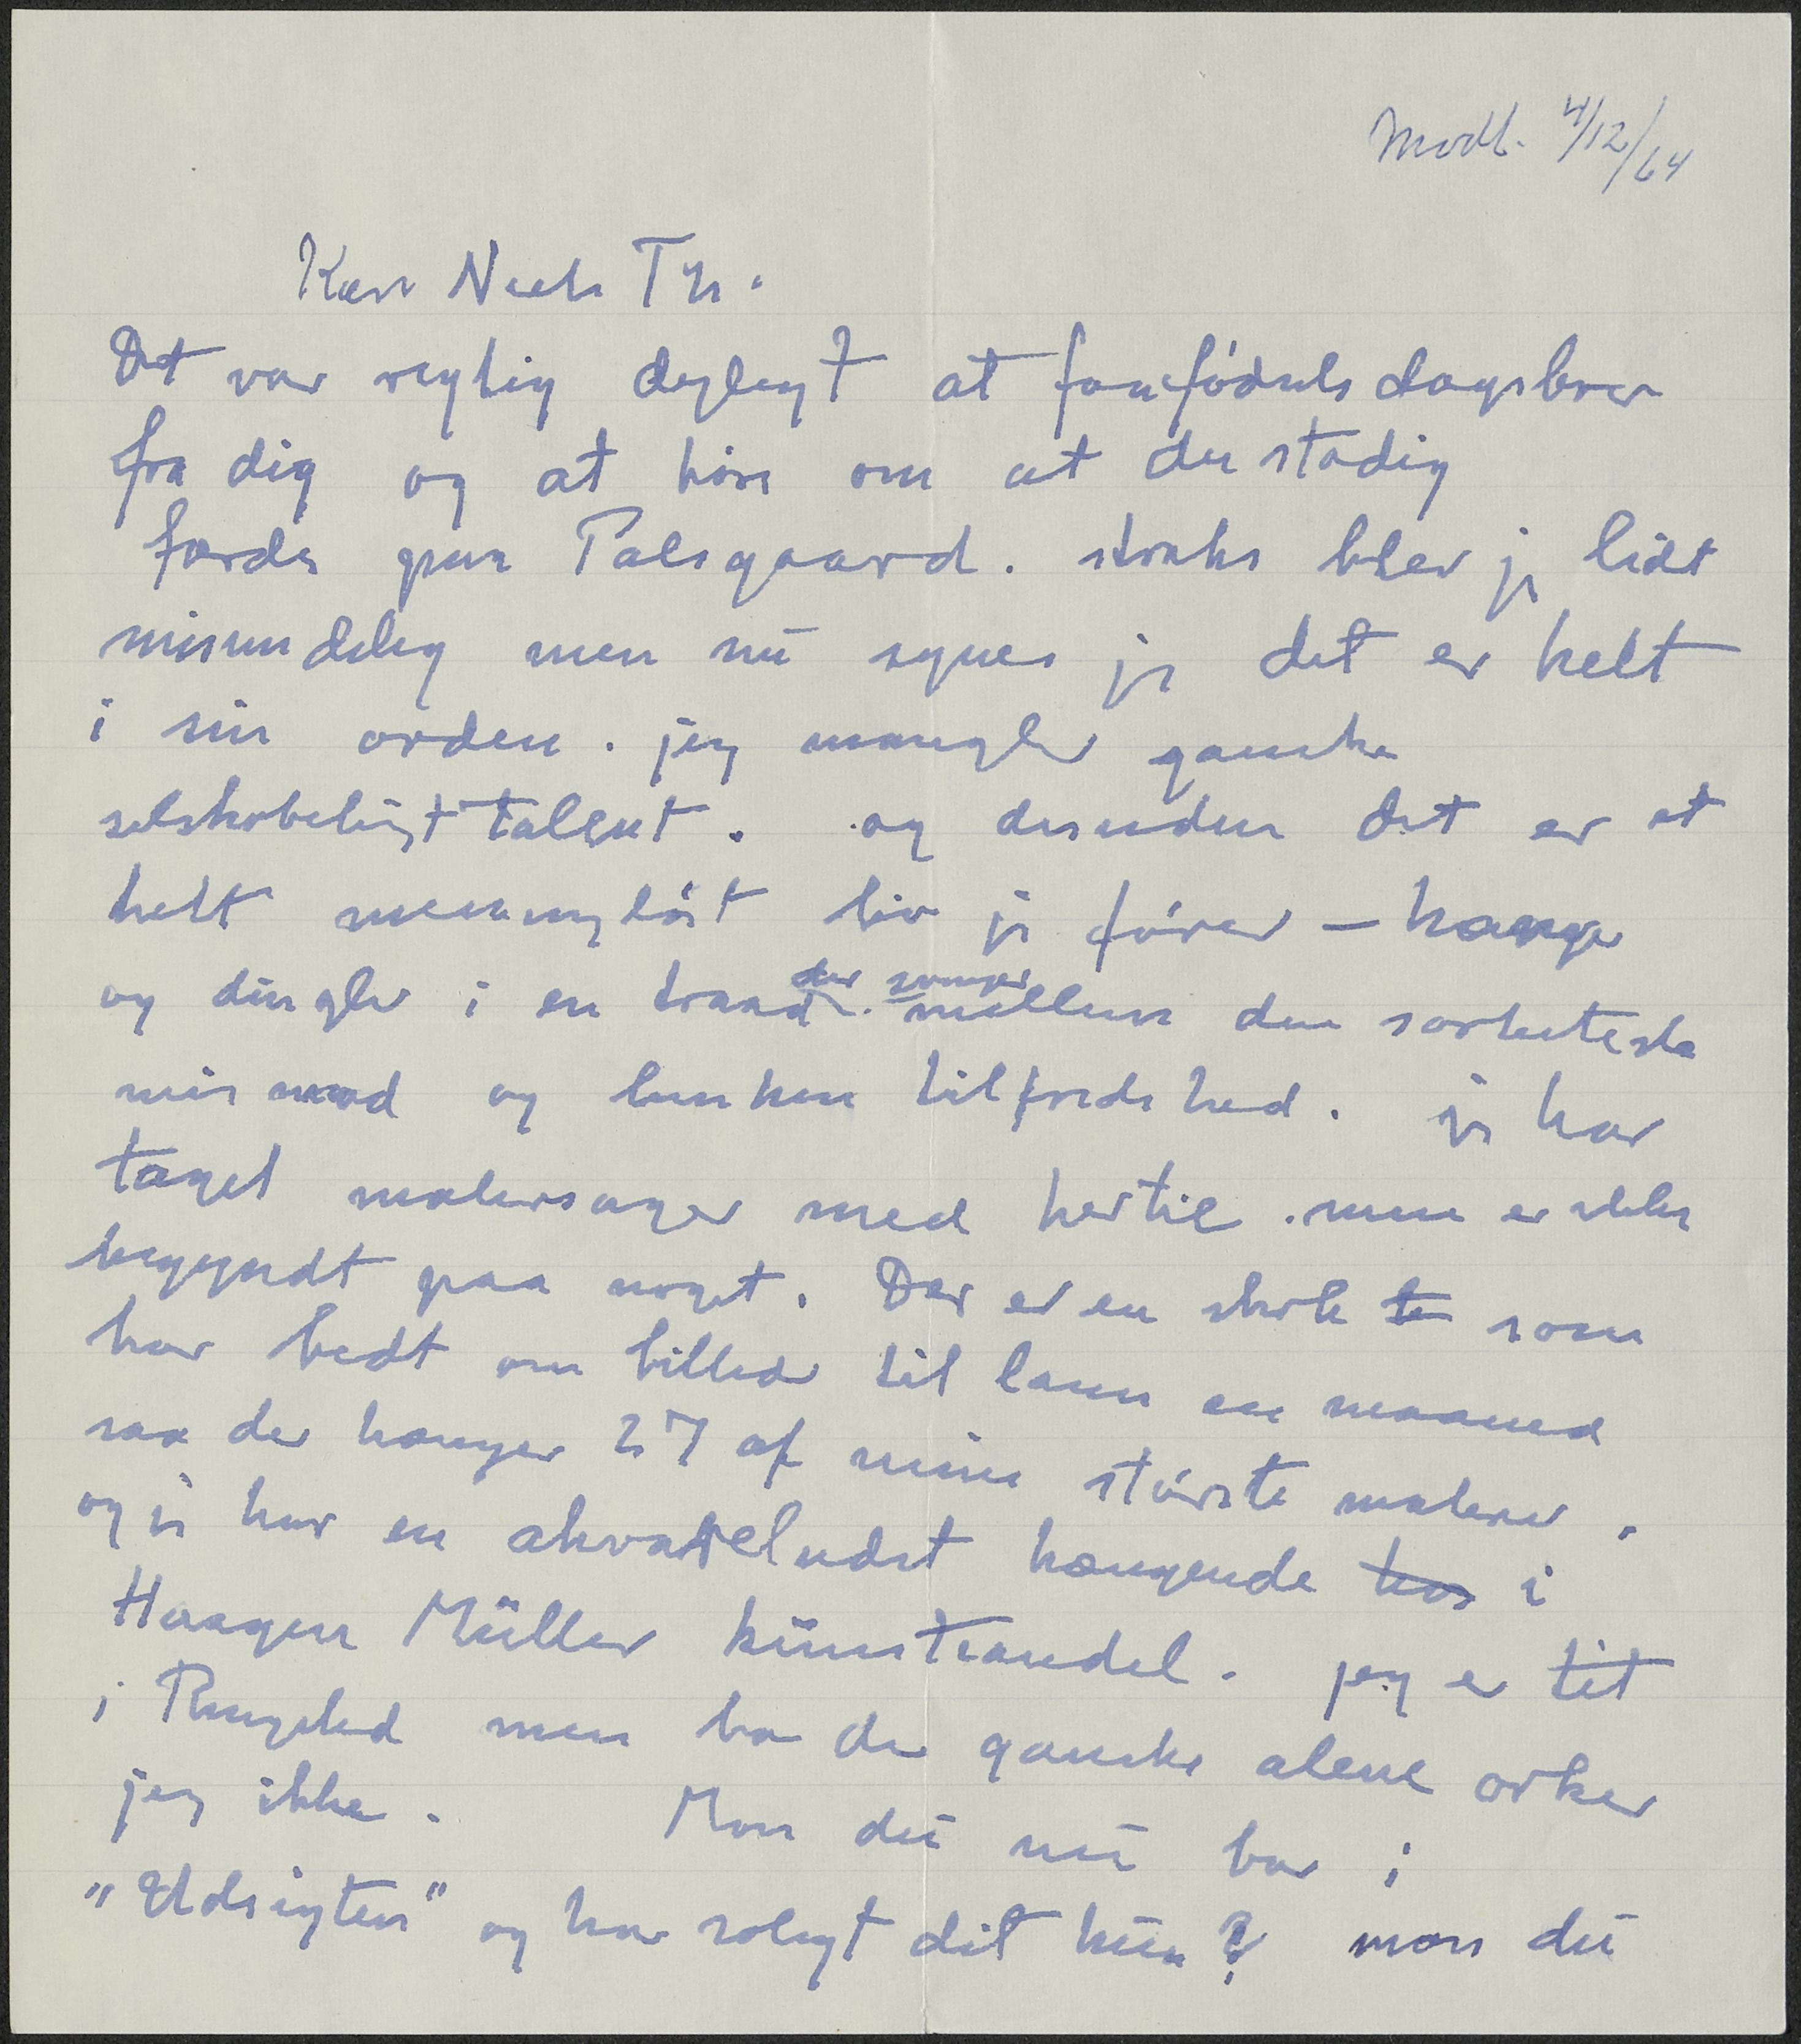 Modt. 4/12/64
Kære Niels Th.
Det var rigtig dejligt at faa fødselsdagsbrev
fra dig og at høre om at du stadig
færdes paa Palsgaard. straks blev jeg lidt
misundelig men nu synes jeg det er helt
i sin orden. jeg mangler ganske
selskabeligt talent. og desuden det er et
helt meningsløst liv jeg fører – hænger
og dingler i en traad der svinger mellem den sorteste
mismod og lunken tilfredshed. jeg har
taget malersager med hertil. men er ikke
begyndt paa noget. Der er en skole som
har bedt om billeder til laan en maaned
saa der hænger 27 af mine største malerier.
og jeg har en akvareludst hængende hos i
Haagen Müller kunsthandel. jeg er tit
i Ringsted men bo der ganske alene orker
jeg ikke. Mon du nu bor i
"Udsigten" og har solgt dit hus? mon du